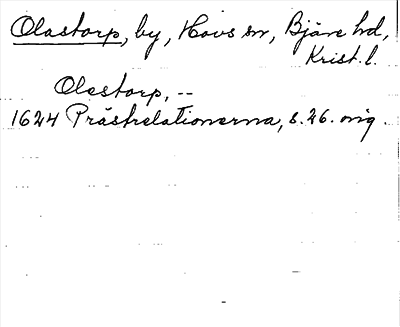 Olastorp, by, Hovs sn, Bjäre hd,
Krist. l.
Olestorp, --
1624 Prästrelationerna, s. 26. orig.